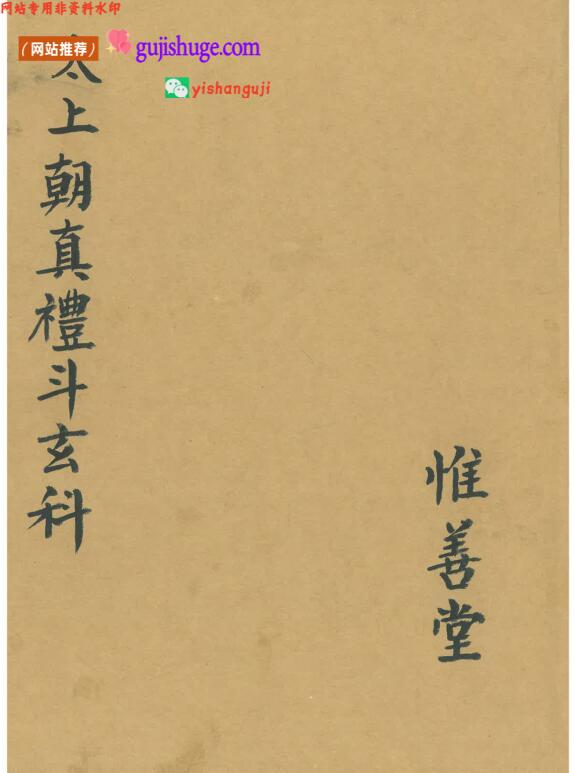 网站专用非资料水印
（网站推荐） gujishuge.com
yishanguji
太上朝真禮斗玄科
惟善堂